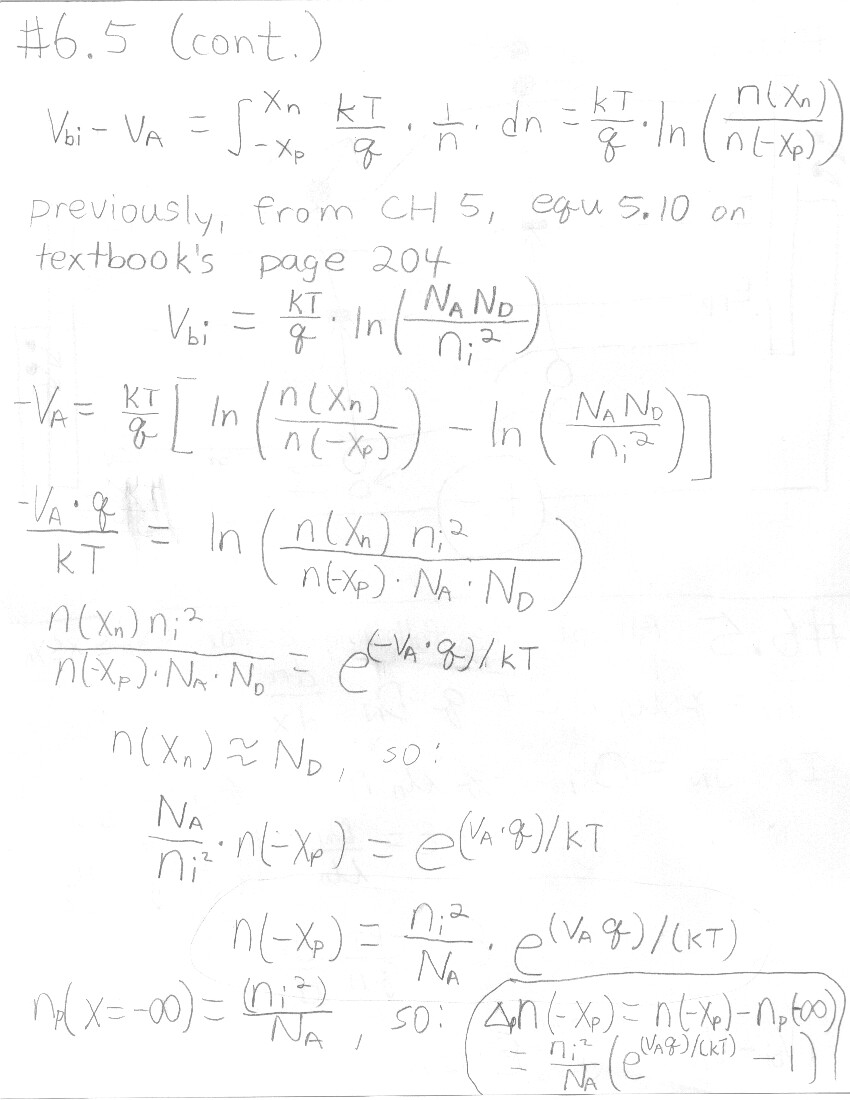 #6.5 (cont.)
V_bi - V_A = ∫_{-x_p}^{x_n} kT/q · 1/n · dn = kT/q · ln(n(x_n)/n(-x_p))
previously, from CH 5, equ 5.10 on
textbook's page 204
V_bi = kT/q · ln(N_A N_D/n_i²)
-V_A = kT/q [ln(n(x_n)/n(-x_p)) - ln(N_A N_D/n_i²)]
-V_A · q/kT = ln(n(x_n) n_i²/n(-x_p) · N_A · N_D)
n(x_n) n_i²/n(-x_p) · N_A · N_D = e^{(-V_A · q)/kT}
n(x_n) ≈ N_D, so:
N_A/n_i² · n(-x_p) = e^{(V_A · q)/kT}
n(-x_p) = n_i²/N_A · e^{(V_A q)/(kT)}
n_p(x=-∞) = (n_i²)/N_A, so: Δ_p n(-x_p) = n(-x_p) - n_p(-∞)
= n_i²/N_A (e^{(V_A q)/(kT)} - 1)